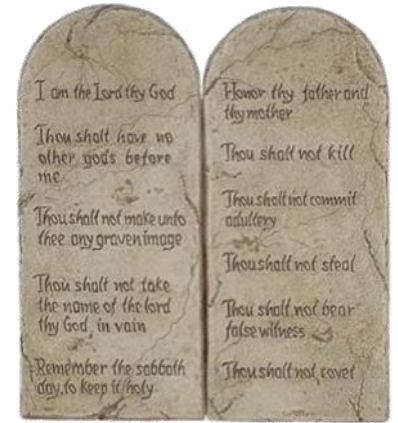 I am the Lord thy God
Thou shalt have no
other gods before
me
Thou shalt not make unto
thee any graven image
Thou shalt not take
the name of the lord
thy God in vain
Remember the sabbath
day, to keep it holy
Honor thy father and
thy mother
Thou shall not kill
Thou shalt not commit
adultery
Thou shalt not steal
Thou shalt not bear
false witness
Thou shalt not covet